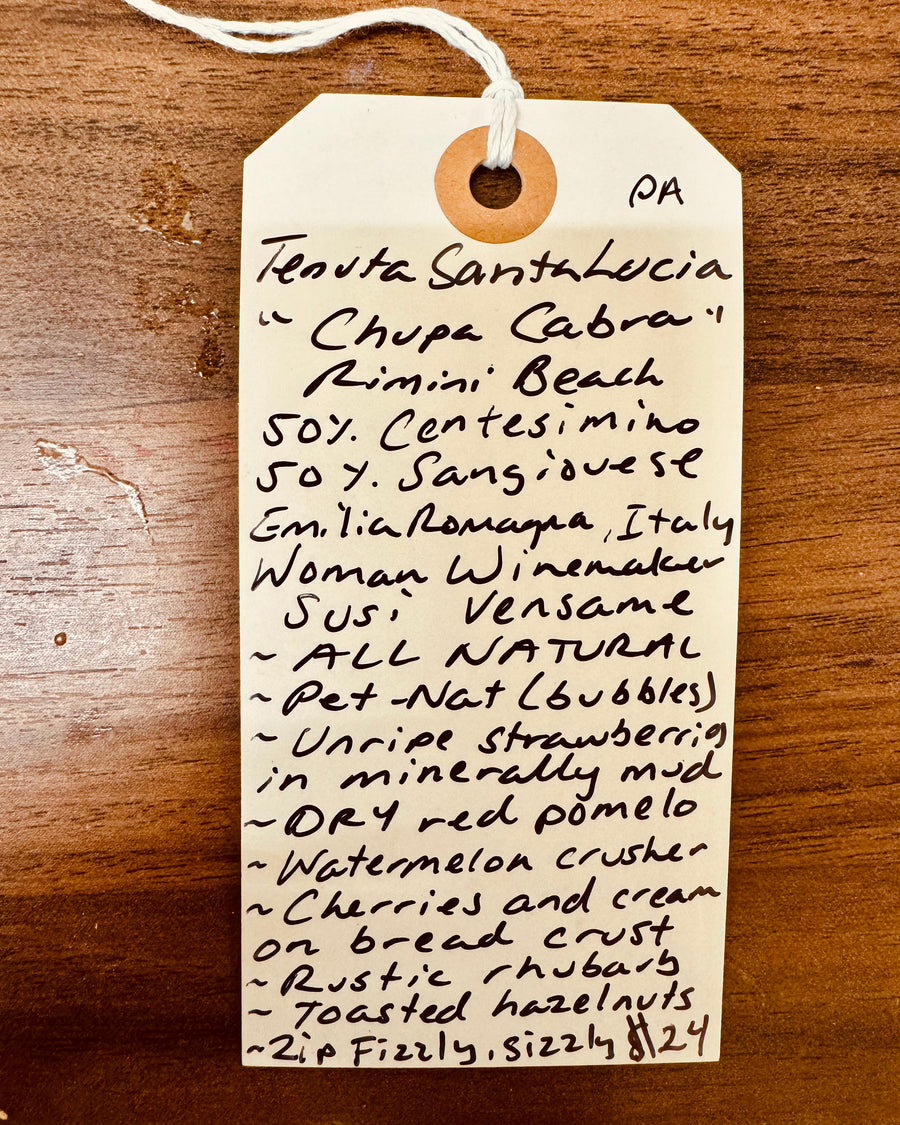 PA
Tenuta Santa Lucia
"Chupa Cabra"
Rimini Beach
50% Centesimino
50% Sangiovese
Emilia Romagna, Italy
Woman Winemaker
Susi Vensame
~ ALL NATURAL
~ Pet-Nat (bubbles)
~ Unripe strawberries
in minerally mud
~ DRY red pomelo
~ Watermelon crusher
~ Cherries and cream
on bread crust
~ Rustic rhubarb
~ Toasted hazelnuts
~ Zip Fizzly, sizzly $24